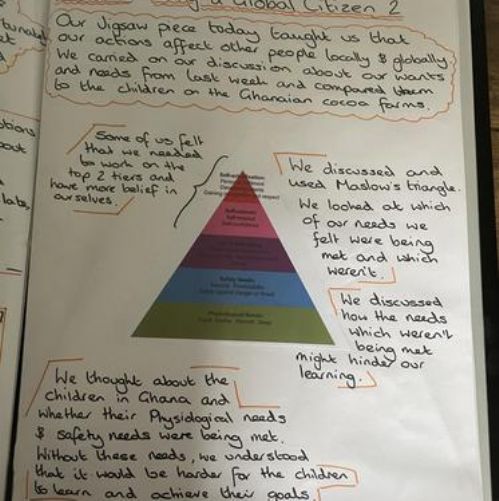 a Global Citizen 2
Our Jigsaw piece today taught us that
our actions affect other people locally & globally
We carried on our discussion about our wants
and needs from last week and compared them
to the children on the Ghanaian cocoa farms.
Some of us felt
that we needed
to work on the
top 2 tiers and
have more belief in
ourselves.
We discussed and
used Maslow's triangle.
We looked at which
of our needs we
felt were being
met and which
weren't.
We discussed
how the needs
which weren't
being met
might hinder our
learning.
Safety Needs
Physiological Needs
We thought about the
children in Ghana and
whether their Physiological needs
& safety needs were being met.
Without these needs, we understood
that it would be harder for the children
to learn and achieve their goals.